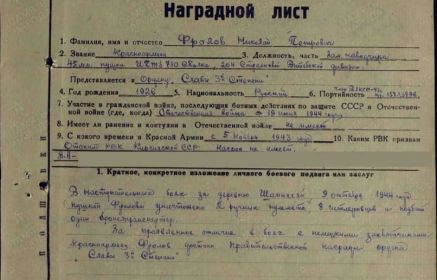 Наградной лист
1. Фамилия, имя и отчество Фролов Николай Петрович
2. Звание Красноармеец 3. Должность, часть Зам. наводчика
45мм. пушки 204 Стрелковой Витебской дивизии
Представляется к Ордену „Славы 3й Степени"
4. Год рождения 1926 5. Национальность Русский 6. Партийность
7. Участие в гражданской войне, последующих боевых действиях по защите СССР и Отечествен-
ной войне (где, когда) Отечественная война с 19 июня 1944 года
8. Имеет ли ранение и контузии в Отечественной войне не имеет
9. С какого времени в Красной Армии с 5 Ноября 1943 года 10. Каким РВК призван
РВК Киргизской ССР. Наград не имеет.
1. Краткое, конкретное изложение личного боевого подвига или заслуг
В наступательных боях за деревню 9 октября 1944 года
пушкой Фролова уничтожено 2 ручных пулемета, 8 гитлеровцев и подбит
один бронетранспортер.
За проявленное отличие в боях с немецкими захватчиками
красноармеец Фролов достоин правительственной награды ордена
„Славы 3й Степени"